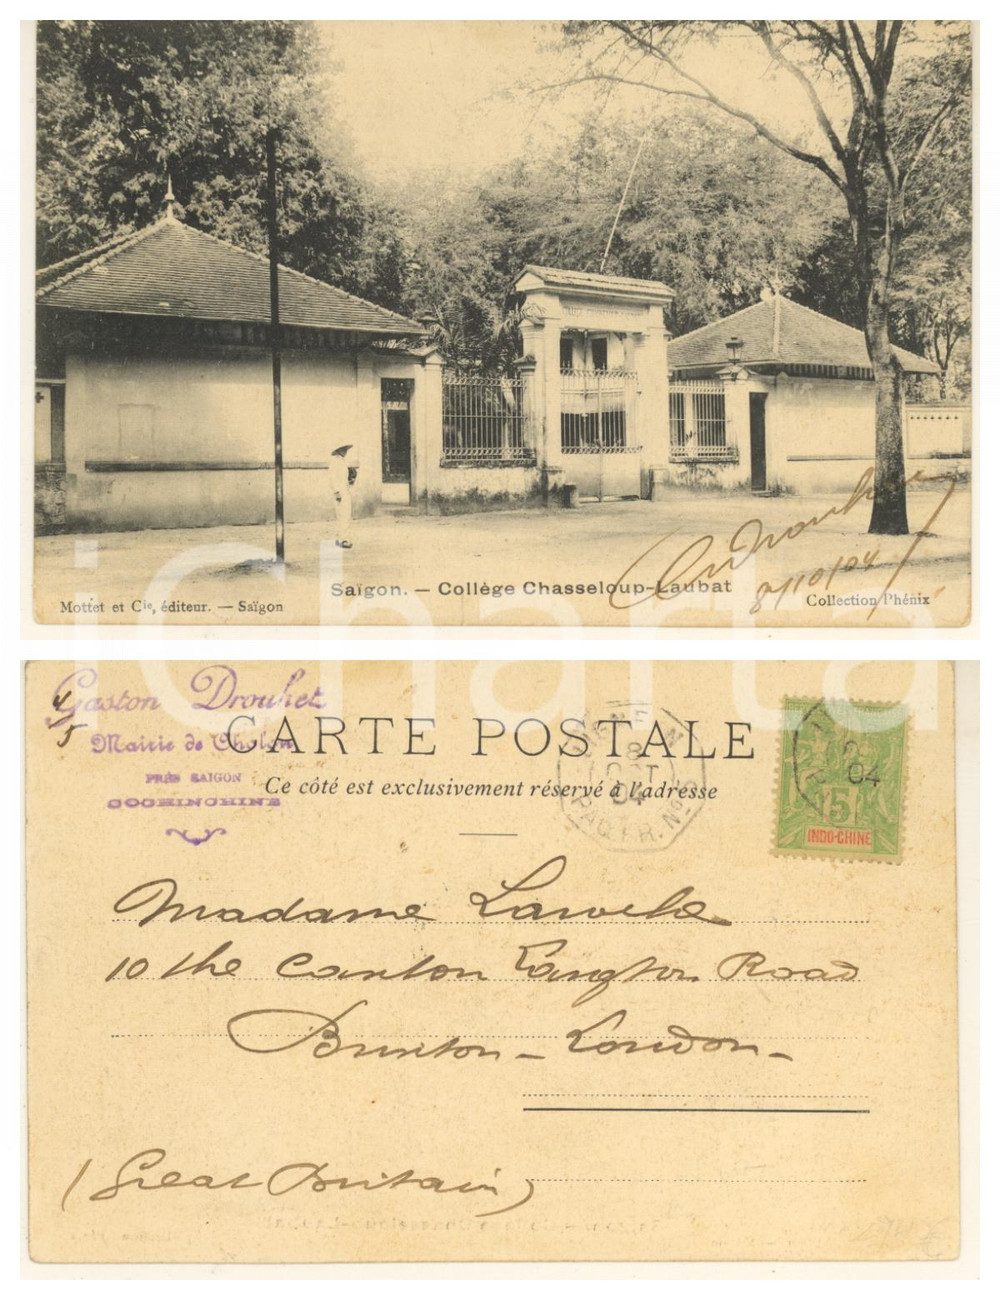 COLLÈGE CHASSELOUP
Saïgon. — Collège Chasseloup-Laubat
Mottet et Cie, éditeur. — Saïgon
8/10/04
Collection Phénix
iCharta
Gaston Drouhet
Mairie de Cholon
PRÈS SAIGON
COCHINCHINE
4/5
CARTE POSTALE
Ce côté est exclusivement réservé à l'adresse
8
OCT
04
PAQ. FR. No
04
5
INDO-CHINE
Madame
10 the Canton Langton Road
Brixton - London -
(Great Britain)